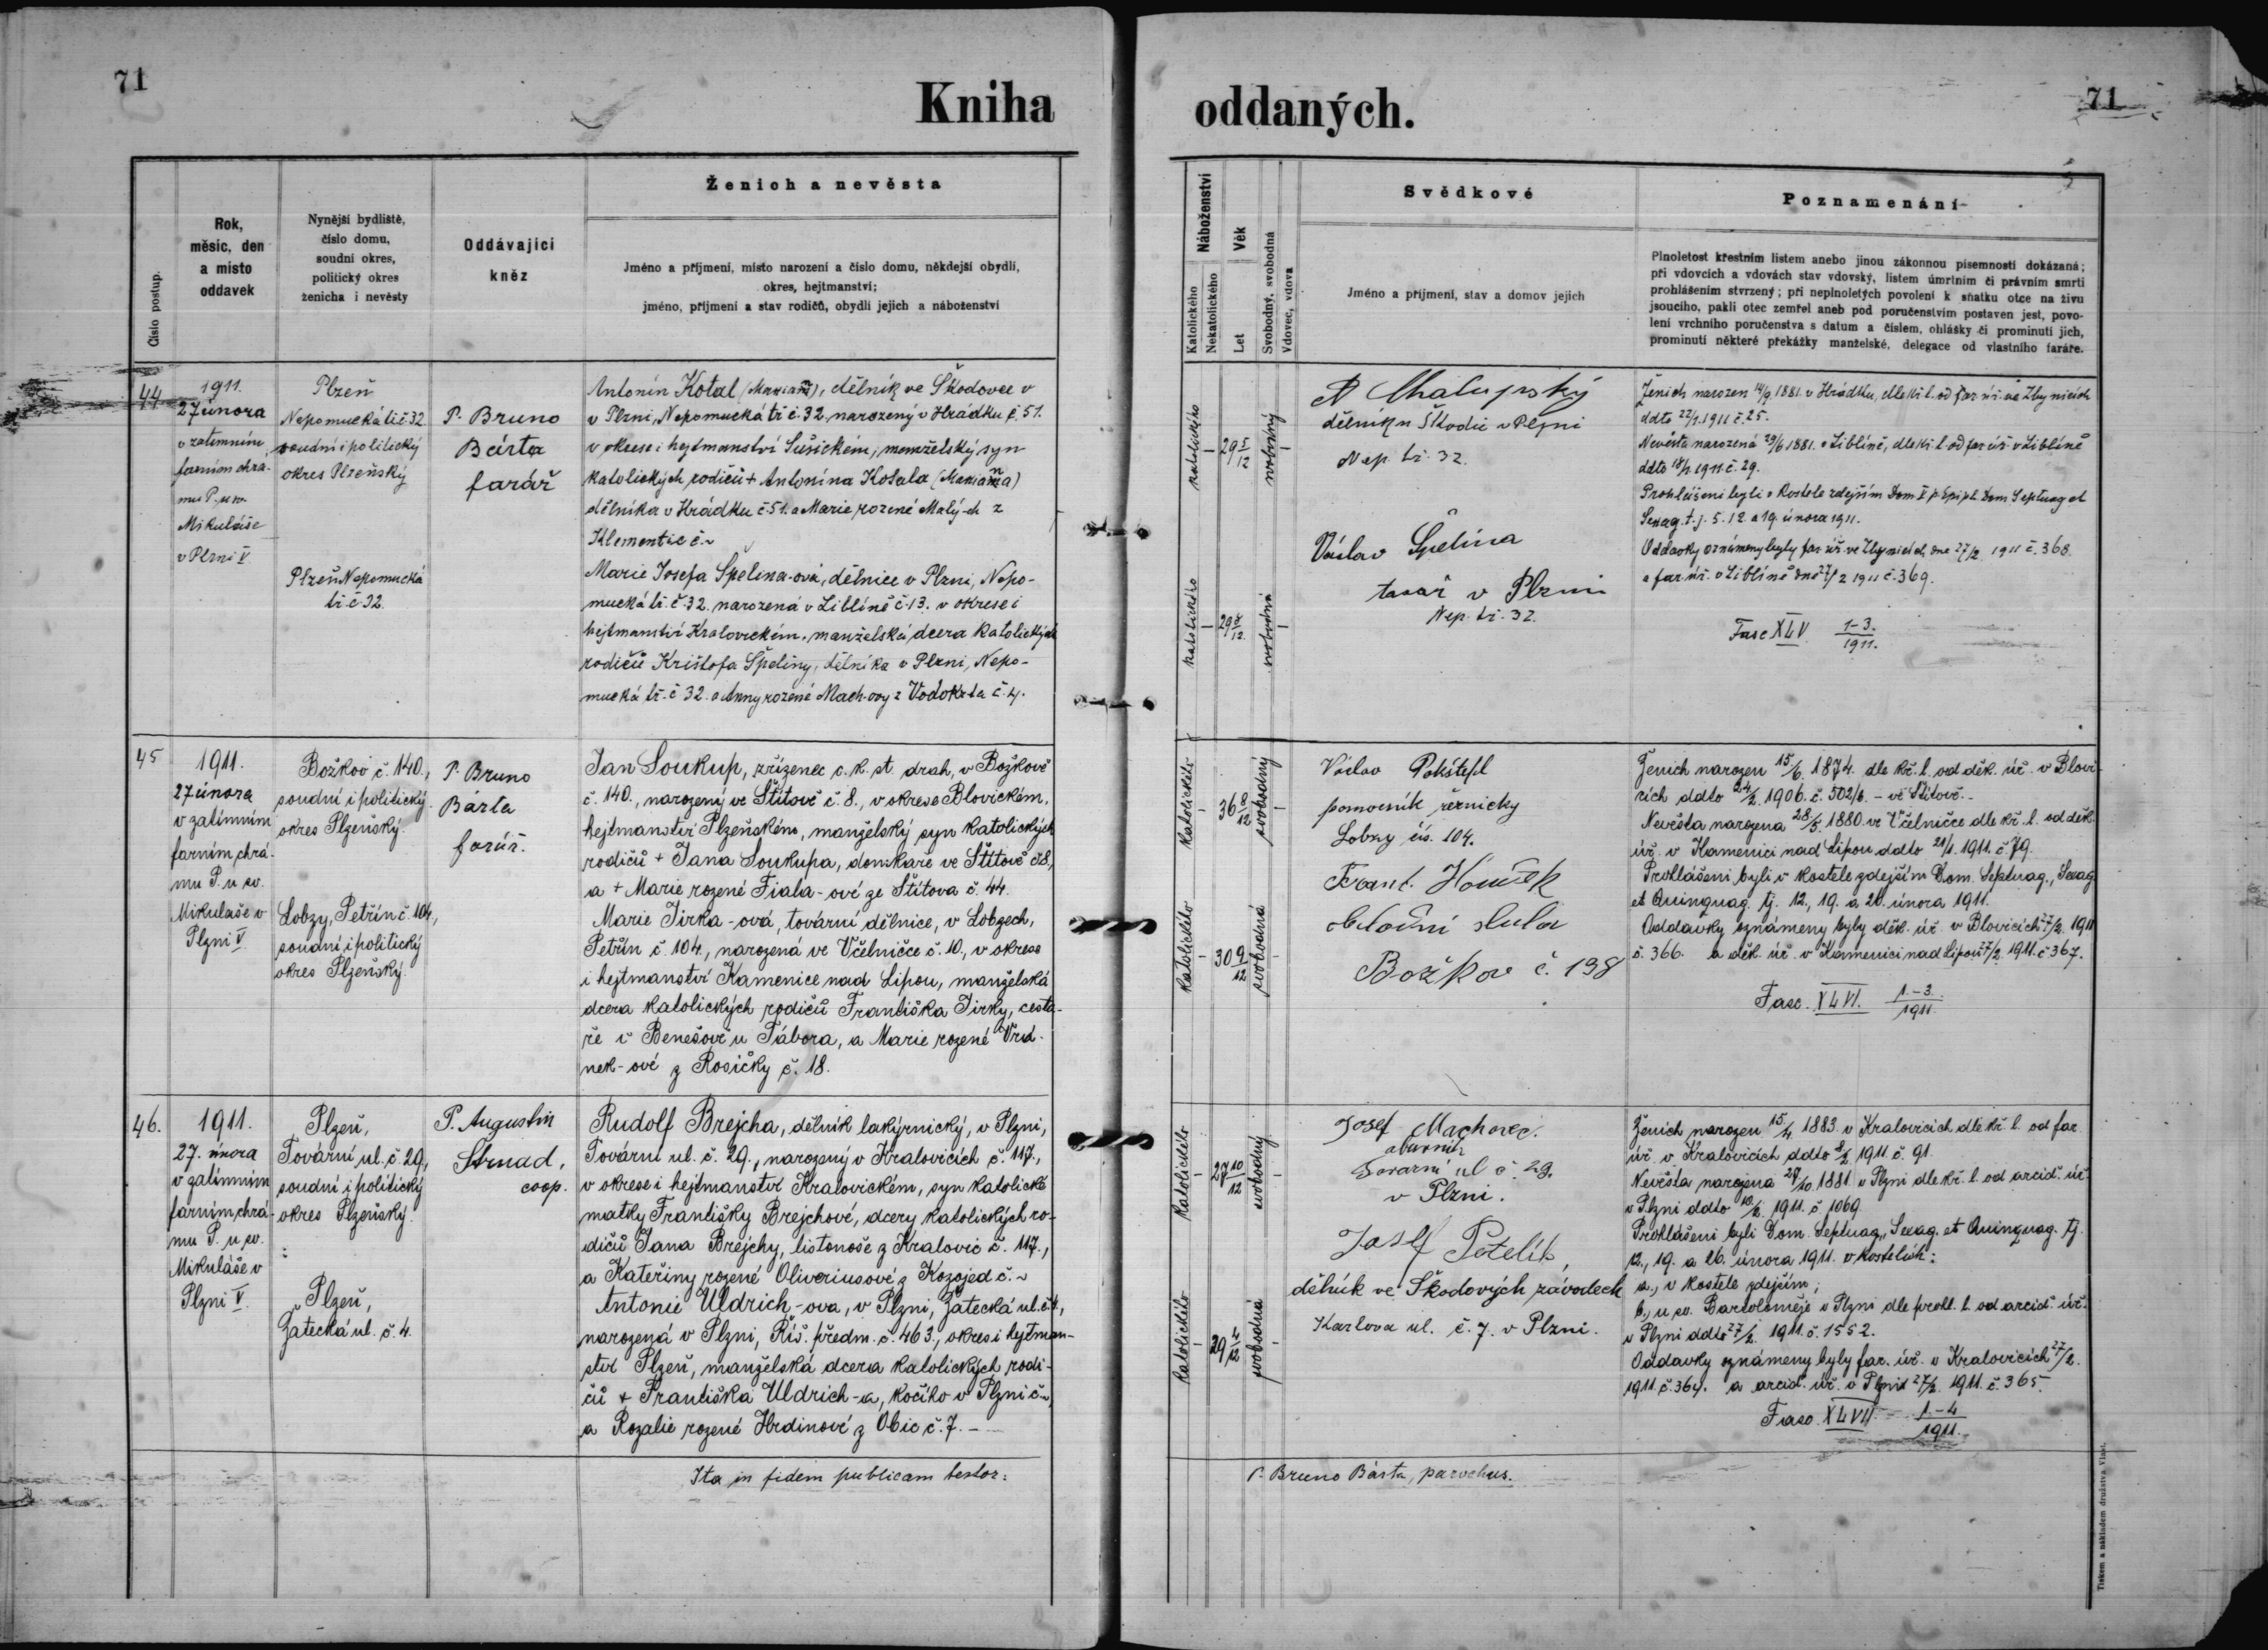 71
Kniha
oddaných.
71
Číslo postup.
Rok,
měsíc, den
a místo
oddavek
Nynější bydliště,
číslo domu,
soudní okres,
politický okres
ženicha i nevěsty
Oddávající
kněz
Ženich a nevěsta
Jméno a příjmení, místo narození a číslo domu, někdejší obydlí,
okres, hejtmanství;
jméno, příjmení a stav rodičů, obydlí jejich a náboženství
Náboženství
Katolického
Nekatolického
Věk
Let
Svobodný, svobodná
Vdovec, vdova
Svědkové
Jméno a příjmení, stav a domov jejich
Poznamenání
Plnoletost křestním listem anebo jinou zákonnou písemností dokázaná;
při vdovcích a vdovách stav vdovský, listem úmrtním či právním smrti
prohlášením stvrzený; při neplnoletých povolení k sňatku otce na živu
jsoucího, pakli otec zemřel aneb pod poručenstvím postaven jest, povo-
lení vrchního poručenstva s datum a číslem, ohlášky či prominutí jich,
prominutí některé překážky manželské, delegace od vlastního faráře.
44
1911.
27 února
v zatímním
farním chrá-
mu P. u sv.
Mikuláše
v Plzni V
Plzeň
Nepomucká tř. č. 32
soudní i politický
okres Plzeňský
Plzeň Nepomucká
tř. č. 32
P. Bruno
Bárta
farář
Antonín Kotal, dělník ve Škodovce v
v Plzni, Nepomucká tř. č. 32, narozený v Hrádku č. 51.
v okrese i hejtmanství Sušickém, manželský syn
katolických rodičů + Antonína Kotala
dělníka v Hrádku č. 51. a Marie, rozené Malý-ch z
Klementic č. ~
Marie Josefa Špelina-ová, dělnice v Plzni, Nepo-
mucká tř. č. 32. narozená v Liblíně č. 13. v okrese i
hejtmanství Kralovickém, manželská dcera katolických
rodičů Krištofa Špeliny, dělníka v Plzni, Nepo-
mucká tř. č. 32. a Anny rozené Mach-ovy z č. 4.
katolického
29 5/12
svobodný
katolického
29 8/12
svobodná
dělník u Škody v Plzni
Nep. tř. 32.
Václav Špelina
v Plzni
Nep. tř. 32.
Ženich narozen 14/9 1881. v Hrádku, dle kř. l. od far. úř. ve Zbynicích
ddto 22/1 1911 č. 25.
Nevěsta narozená 29/6 1881. v Liblíně, dle kř. l. od far. úř. v Liblíně
ddto 18/1 1911 č. 29.
Prohlášeni byli v kostele zdejším Dom V p. Epiph. Dom Septuag et
Sexag. t. j. 5. 12. a 19. února 1911.
Oddavky oznámeny byly far. úř. ve Zbynicích dne 27/2 1911 č. 368.
a far. úř. v Liblíně dne 27/2 1911 č. 369.
Fasc XLV 1-3./1911.
45
1911.
27 února
v zatímním
farním chrá-
mu P. u sv.
Mikuláše v
Plzni V.
Božkov č. 140.,
soudní i politický
okres Plzeňský.
Lobzy, Petřín č. 104.,
soudní i politický
okres Plzeňský.
P. Bruno
Bárta
farář.
Jan Soukup, zřízenec c. k. st. drah, v Božkově
č. 140., narozený ve Štítově č. 8., v okrese Blovickém,
hejtmanství Plzeňském, manželský syn katolických
rodičů + Jana Soukupa, domkáře ve Štítově č. 8,
a + Marie rozené Fiala-ové ze Štítova č. 44.
Marie Jirka-ová, tovární dělnice, v Lobzech,
Petřín č. 104., narozená ve Včelničce č. 10., v okrese
i hejtmanství Kamenice nad Lipou, manželská
dcera katolických rodičů Františka Jirky, cesta-
ře v Benešově u Tábora, a Marie rozené Vrá-
nek-ové z Rosičky č. 18.
Katolického
36 8/12
svobodný
Katolického
30 9/12
svobodná
Václav Pokštefl
pomocník řeznický
Lobzy čís. 104.
Frant.
obecní sluha
Božkov č. 198
Ženich narozen 15/6. 1874. dle kř. l. od děk. úř. v Blovi-
cích ddto 24/2. 1906. č. 502/6. - ve Štítově. -
Nevěsta narozena 28/5. 1880. ve Včelničce dle kř. l. od děk.
úř. v Kamenici nad Lipou ddto 21/1. 1911. č. 79.
Prohlášeni byli v kostele zdejším Dom. Septuag., Sexag.
et Quinquag. tj. 12., 19. a 26. února 1911.
Oddavky oznámeny byly děk. úř. v Blovicích 27/2. 1911
č. 366. a děk. úř. v Kamenici nad Lipou 27/2. 1911. č. 367.
Fasc. XLVI. 1.-3./1911.
46.
1911.
27. února
v zatímním
farním chrá-
mu P. u sv.
Mikuláše v
Plzni V.
Plzeň,
Tovární ul. č. 29,
soudní i politický
okres Plzeňský.
Plzeň,
Žatecká ul. č. 4.
P. Augustin
Strnad,
coop.
Rudolf Brejcha, dělník lakýrnický, v Plzni,
Tovární ul. č. 29., narozený v Kralovicích č. 117.,
v okrese i hejtmanství Kralovickém, syn katolické
matky Františky Brejchové, dcery katolických ro-
dičů Jana Brejchy, listonoše z Kralovic č. 117.,
a Kateřiny rozené Oliveriusové z Kozojed č. ~
Antonie Uldrich-ova, v Plzni, Žatecká ul. č. 4,
narozená v Plzni, Říš. předm. č. 463., okres i hejtman-
ství Plzeň, manželská dcera katolických rodi-
čů + Františka Uldrich-a, kočího v Plzni č. ~,
a Rozalie rozené Hrdinové z Obic č. 7. -
Katolického
27 10/12
svobodný
Katolického
29 4/12
svobodná
Josef Machovec.
obuvník
Tovární ul č. 29.
v Plzni.
Josef
dělník ve Škodových závodech
Karlova ul. č. 7. v Plzni.
Ženich narozen 15/4. 1883. v Kralovicích dle kř. l. od far.
úř. v Kralovicích ddto 8/2. 1911. č. 91.
Nevěsta narozena 28/10. 1881. v Plzni dle kř. l. od arcid. úř.
v Plzni ddto 10/2. 1911. č. 1069.
Prohlášeni byli Dom. Septuag., Sexag. et Quinquag. tj.
12., 19. a 26. února 1911. v kostelích:
a., v kostele zdejším;
b., u sv. Bartoloměje v Plzni dle prohl. l. od arcid. úř.
v Plzni ddto 27/2. 1911. č. 1552.
Oddavky oznámeny byly far. úř. v Kralovicích 27/2.
1911. č. 364. a arcid. úř. v Plzni 27/2. 1911. č. 365.
Fasc. XLVII. 1.-4/1911.
Ita in fidem publicam testor:
P. Bruno Bárta, parochus.
Tiskem a nákladem družstva Vlast.